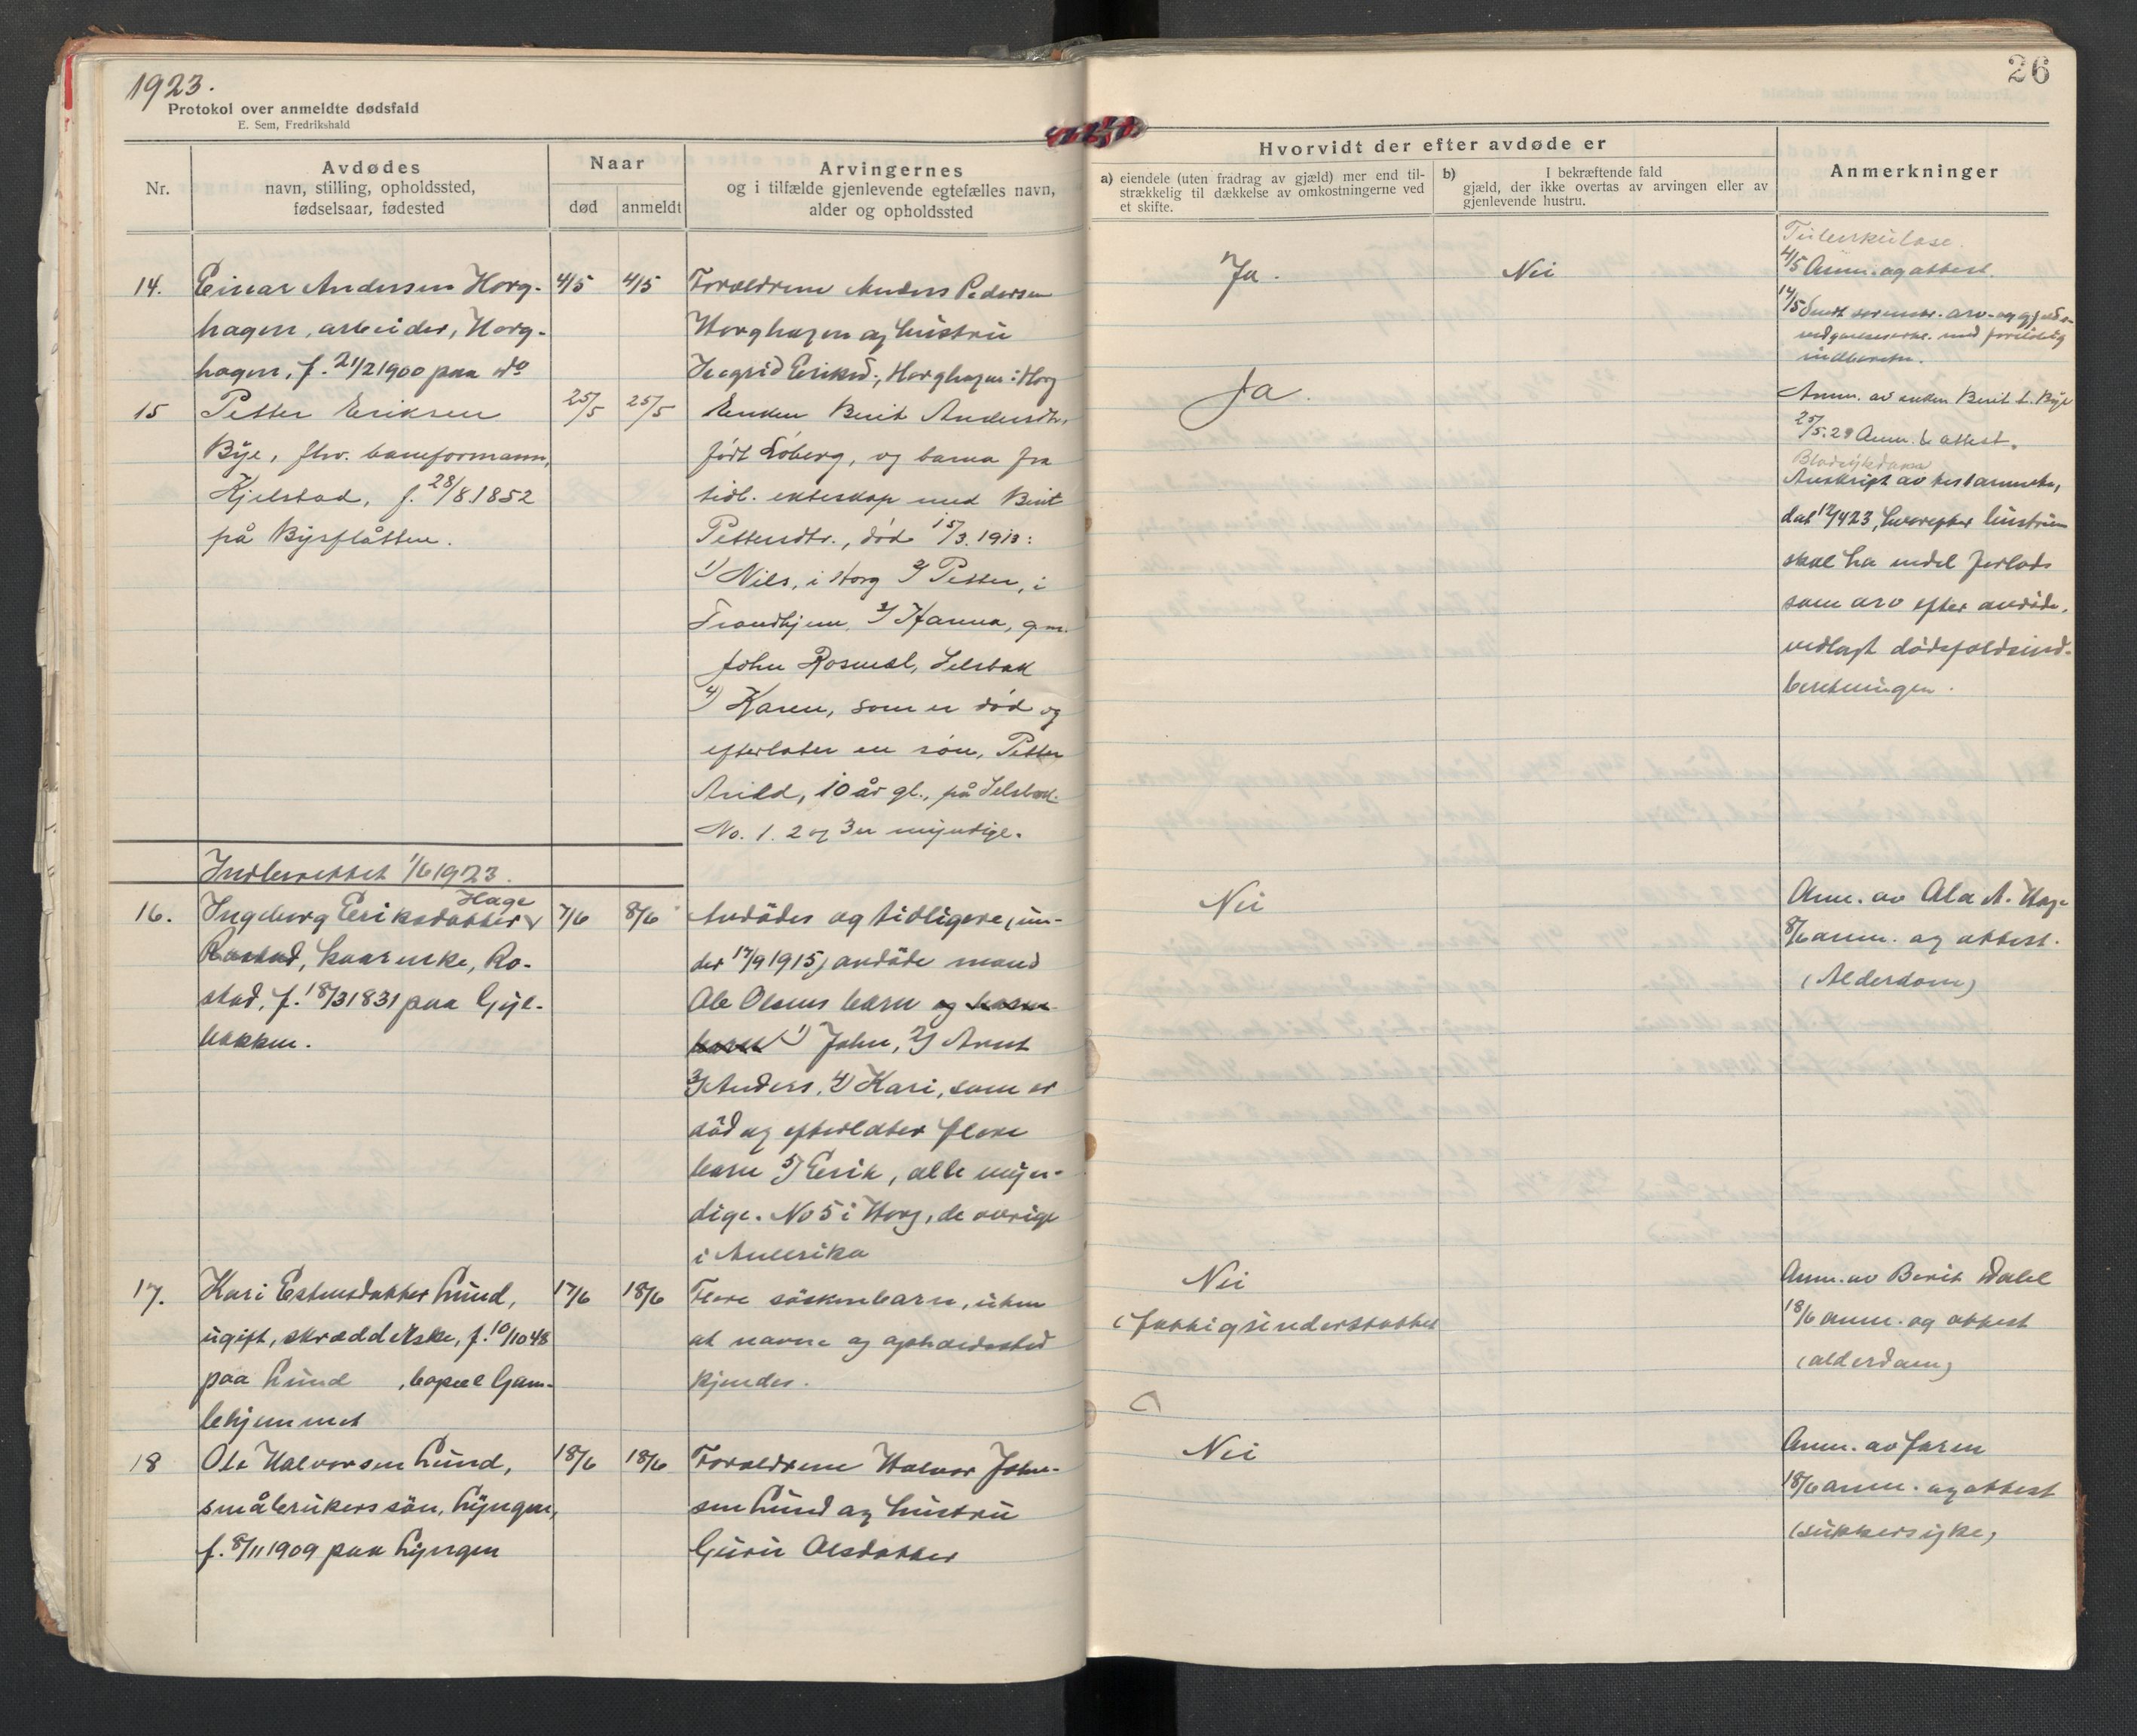 1923.
Protokol over anmeldte dødsfald
E. Sem, Fredrikshald
Nr.
Avdødes
navn, stilling, opholdssted,
fødselsaar, fødested
Naar
død
anmeldt
Arvingernes
og i tilfælde gjenlevende egtefælles navn,
alder og opholdssted
14.
Einar Andersen Horg-
hagen, arbeider, Horg-
hagen, f. 21/2 1900 paa do
4/5
4/5
Forældrene Anders Pedersen
Horghagen og hustru
Ingrid Eriksd., Horghagen i Horg
15
Petter Eriksen
Bye, fhv. baneformann,
Kjelstad, f. 28/8.1852
på Bysflåtten.
25/5
25/5
Enken Berit Andersdtr.
født Loberg, og barna fra
tidl. ekteskap med Berit
Pettersdtr., død 15/3.1913:
1) Nils, i Horg 2) Petter, i
Trondhjem, 3) Hanna, gm.
John Rosmæl, Selsbak
4) Karen, som er død og
efterlater en søn, Petter
Arild, 10 år gl., på Selsbak.
No. 1. 2 og 3 er myndige.
Indberettet 1/6 1923.
16.
Hage
Ingeborg Eriksdatter
Rostad, kaarenke, Ro-
stad, f. 18/3 1831 paa Gyl-
bakken.
7/6
8/6
Avdødes og tidligere, un-
der 17/9 1915, avdøde mand
Ole Olsens barn og barne
barn 1) John, 2) Arnt
3) Anders, 4) Kari, som er
død og efterlater flere
barn 5) Erik, alle myn-
dige. No 5 i Horg, de øvrige
i Amerika
17.
Kari Estensdatter Lund,
ugift, skrædderske, f. 10/10 48
paa Lund , bopæl Gam-
lehjemmet
17/6
18/6
Flere søskenbarn, uten
at navne og opholdssted
kjendes.
18
Ole Halvorsen Lund,
småbrukers søn, Lyngen,
f. 8/11 1909 paa Lyngen
18/6
18/6
Forældrene Halvor John-
sen Lund og hustru
Guru Olsdatter
26
Hvorvidt der efter avdøde er
a) eiendele (uten fradrag av gjæld) mer end til-
strækkelig til dækkelse av omkostningerne ved
et skifte.
b) I bekræftende fald
gjæld, der ikke overtas av arvingen eller av
gjenlevende hustru.
Anmerkninger
Ja.
Nei
Tuberkulose.
4/5 Anm. og attest.
14/5 Sendt sorenskr. arv- og gjælds-
vedgaaelseserkl. med foreløbig
indberetn.
Ja.
Anm. av enken Berit A. Bye
25/5.23 Anm. & attest.
Avskrift av testamente,
dat 12/4 23, hvorefter hustruen
skal ha endel
som arv efter avdøde,
vedlagt dødsfaldsind-
beretningen.
Nei
Anm. av Ola A. Hage
8/6 anm. og attest.
(Alderdom)
Nei
(fattigunderstøttet
Anm. av Berit Dahl
18/6 anm. og attest
(alderdom)
Nei
Anm. av faren
18/6 anm. og attest
(sukkersyke)